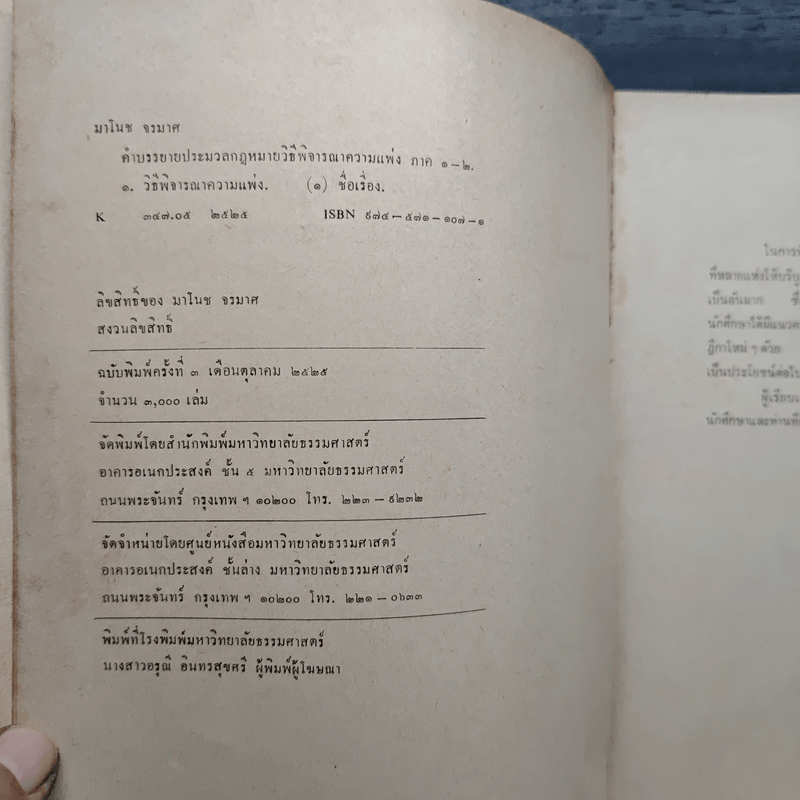 มาโนช จรมาศ
คำบรรยายประมวลกฎหมายวิธีพิจารณาความแพ่ง ภาค ๑–๒.
๑. วิธีพิจารณาความแพ่ง. (๑) ชื่อเรื่อง.
K ๓๔๗.๐๕ ๒๕๒๕ ISBN ๙๗๔–๕๗๑–๑๐๗–๑
ลิขสิทธิ์ของ มาโนช จรมาศ
สงวนลิขสิทธิ์
ฉบับพิมพ์ครั้งที่ ๓ เดือนตุลาคม ๒๕๒๕
จำนวน ๓,๐๐๐ เล่ม
จัดพิมพ์โดยสำนักพิมพ์มหาวิทยาลัยธรรมศาสตร์
อาคารอเนกประสงค์ ชั้น ๕ มหาวิทยาลัยธรรมศาสตร์
ถนนพระจันทร์ กรุงเทพ ฯ ๑๐๒๐๐ โทร. ๒๒๓–๙๒๓๒
จัดจำหน่ายโดยศูนย์หนังสือมหาวิทยาลัยธรรมศาสตร์
อาคารอเนกประสงค์ ชั้นล่าง มหาวิทยาลัยธรรมศาสตร์
ถนนพระจันทร์ กรุงเทพ ฯ ๑๐๒๐๐ โทร. ๒๒๑–๐๖๓๓
พิมพ์ที่โรงพิมพ์มหาวิทยาลัยธรรมศาสตร์
นางสาวอรุณี อินทรสุขศรี ผู้พิมพ์ผู้โฆษณา
ในการ
ที่หลายแห่งให้บริบู
เป็นอันมาก
นักศึกษาได้มีแนว
ฎีกาใหม่ ๆ ด้วย
เป็นประโยชน์ต่อไป
ผู้เรียบเ
นักศึกษาและท่าน